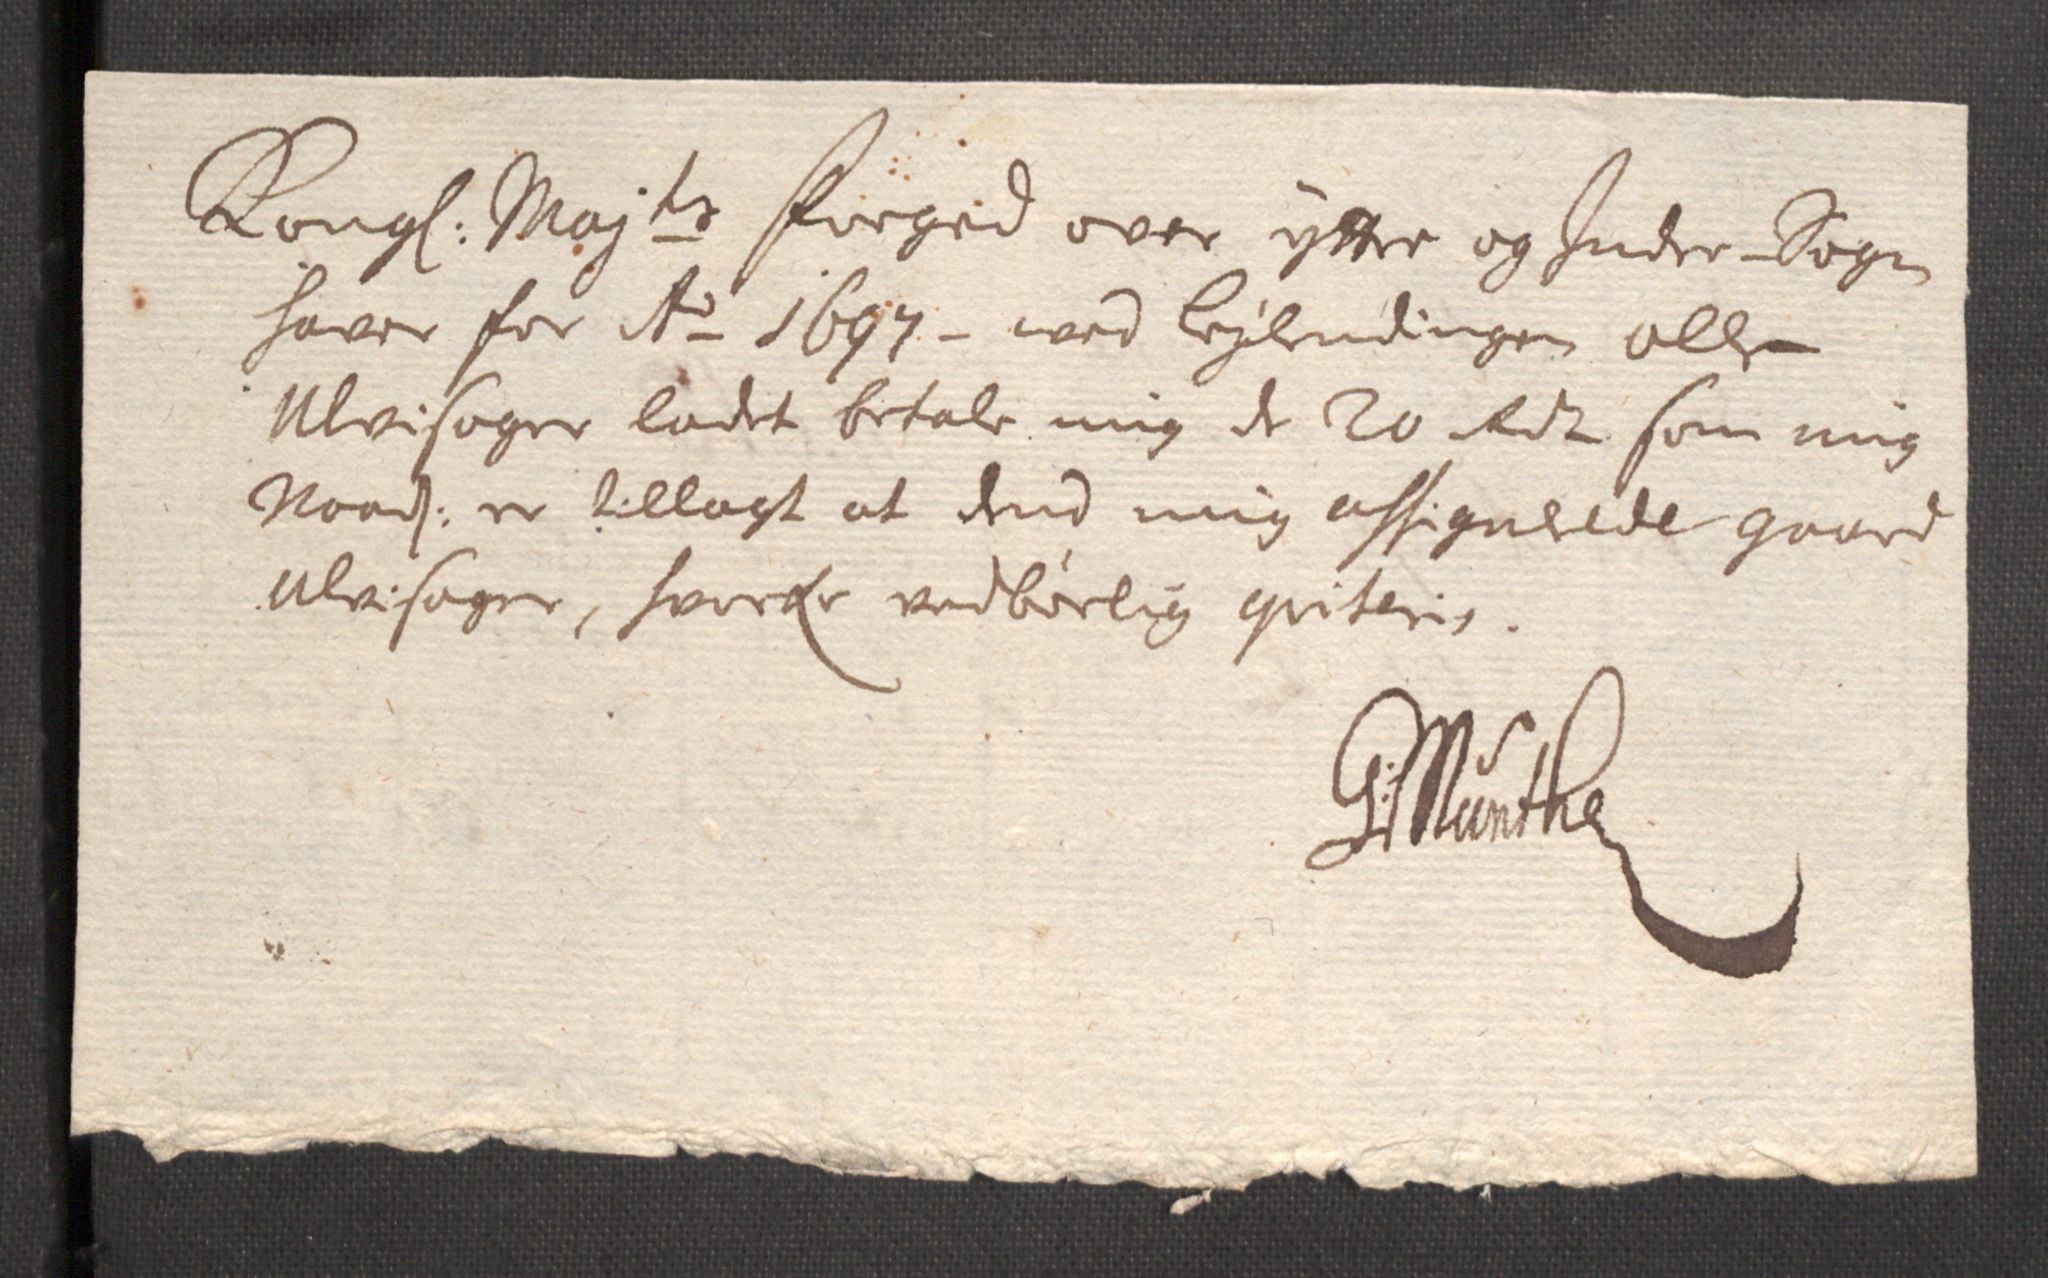 Kongl: Maj ts forged over ÿtter og Inder-Sogn
haver for Ao 1697 - ved leÿlendingen Olle
Ulvisager ladet betale mig de 20 Rdr som mig
Naad: er tillagt at dend mig assignerede gaard
Ulvisager, hvorfor vedbørlig qviteris.
G: Munthe